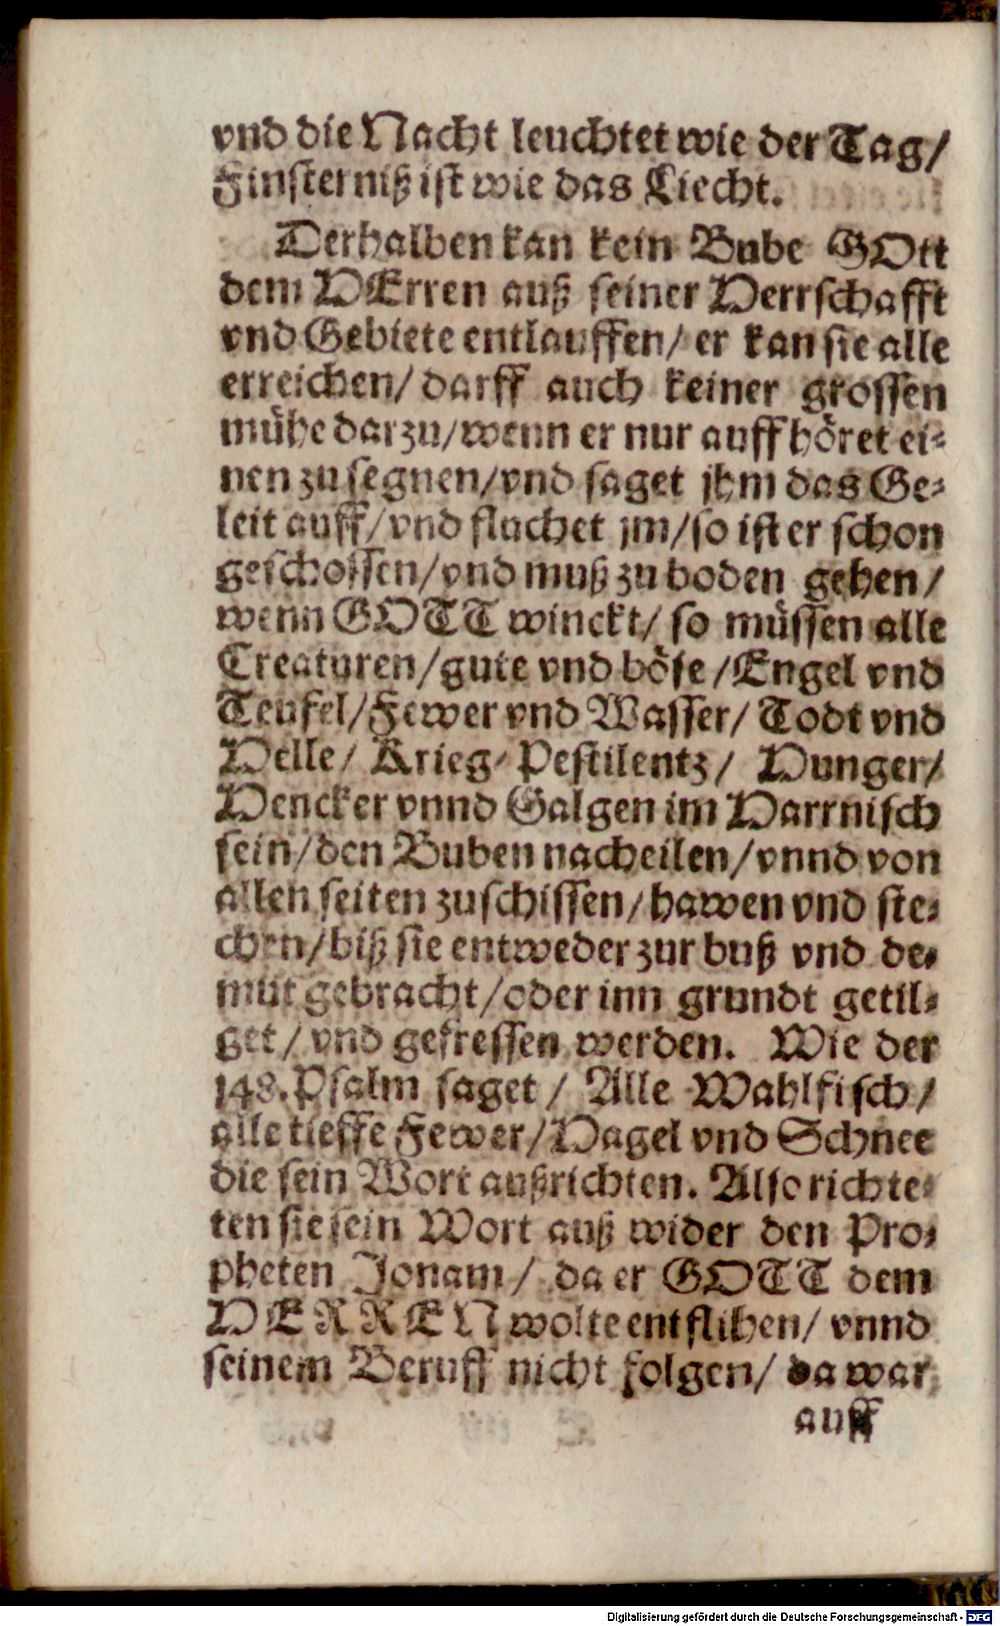 vnd die Nacht leuchtet wie der Tag/
Finsterniß ist wie das Liecht.
Derhalben kan kein Bube GOtt
dem HErren auß seiner Herrschafft
vnd Gebiete entlauffen/ er kan sie alle
erreichen/ darff auch keiner grossen
mühe darzu/ wenn er nur auffhöret ei-
nen zu segnen/ vnd saget jhm das Ge-
leit auff/ vnd fluchet jm/ so ist er schon
geschossen/ vnd muß zu boden gehen/
wenn GOTT winckt/ so müssen alle
Creaturen/ gute vnd böse/ Engel vnd
Teufel/ Fewer vnd Wasser/ Todt vnd
Helle/ Krieg/ Pestilentz/ Hunger/
Hencker vnnd Galgen im Harrnisch
sein/ den Buben nacheilen/ vnnd von
allen seiten zuschissen/ hawen vnd ste-
chen/ biß sie entweder zur buß vnd de-
mut gebracht/ oder inn grundt getil-
get/ vnd gefressen werden. Wie der
148. Psalm saget/ Alle Wahlfisch/
alle tieffe Fewer/ Hagel vnd Schnee
die sein Wort außrichten. Also richte-
ten sie sein Wort auß wider den Pro-
pheten Jonam/ da er GOTT dem
HERREN wolte entflihen/ vnnd
seinem Beruff nicht folgen/ da war
auff
Digitalisierung gefördert durch die Deutsche Forschungsgemeinschaft - DFG